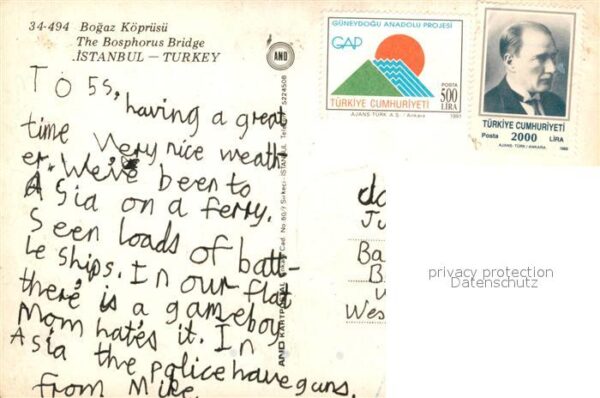 34-494 Boğaz Köprüsü
The Bosphorus Bridge
İSTANBUL – TURKEY
AND
TO 5s, having a great
time Very nice weath-
er. We've been to
Asia on a ferry.
Seen loads of batt-
le ships. In our flat
there is a gameboy
Mom hates it. In
Asia the police have guns.
from Mike
AND KARTPOSTAL Ankara Cad. No 60/7 Sirkeci-İSTANBUL Tel: 5224508
GÜNEYDOĞU ANADOLU PROJESİ
GAP
POSTA
500
LİRA
TÜRKİYE CUMHURİYETİ
AJANS-TÜRK A.Ş. / Ankara
TÜRKİYE CUMHURİYETİ
Posta 2000 LİRA
AJANS-TÜRK / ANKARA
Ju
Ba
B
Wes
privacy protection
Datenschutz